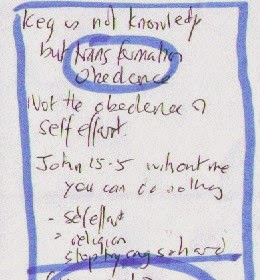 Key is not knowledge
but transformation
obedence
Not the obedence of
self effort.
John 15-5 without me
you can do nothing
- self effort
- religion
stop trying so hard